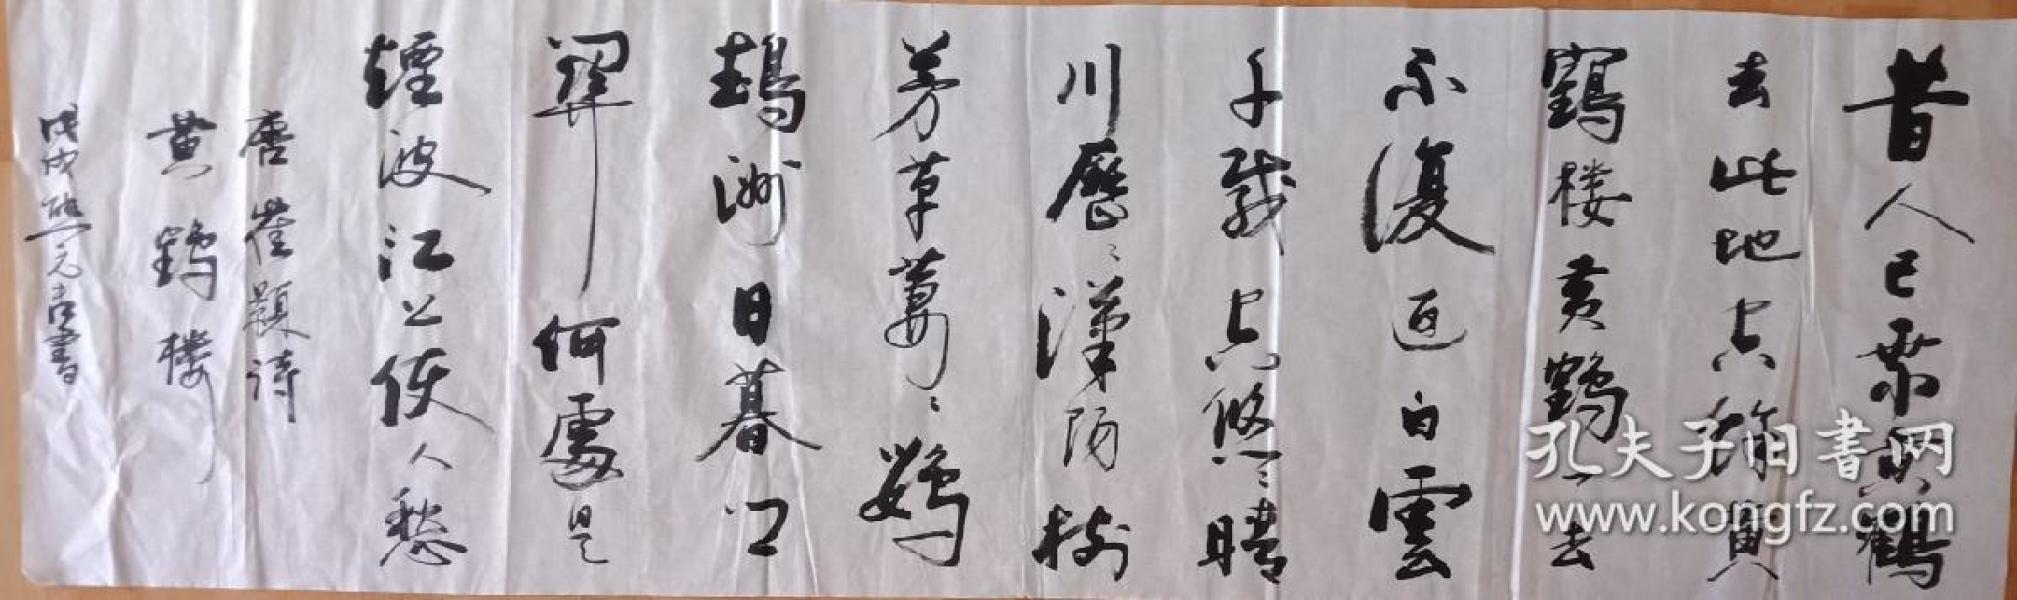 昔人已乘黄鶴
去此地空餘黄
鶴楼黄鶴一去
不復返白雲
千載空悠〻晴
川歷〻漢陽樹
芳草萋〻鸚
鵡洲日暮鄉
関何處是
煙波江上使人愁
唐崔顥詩
黄鶴樓
戊戌元書
孔夫子旧書网
www.kongfz.com